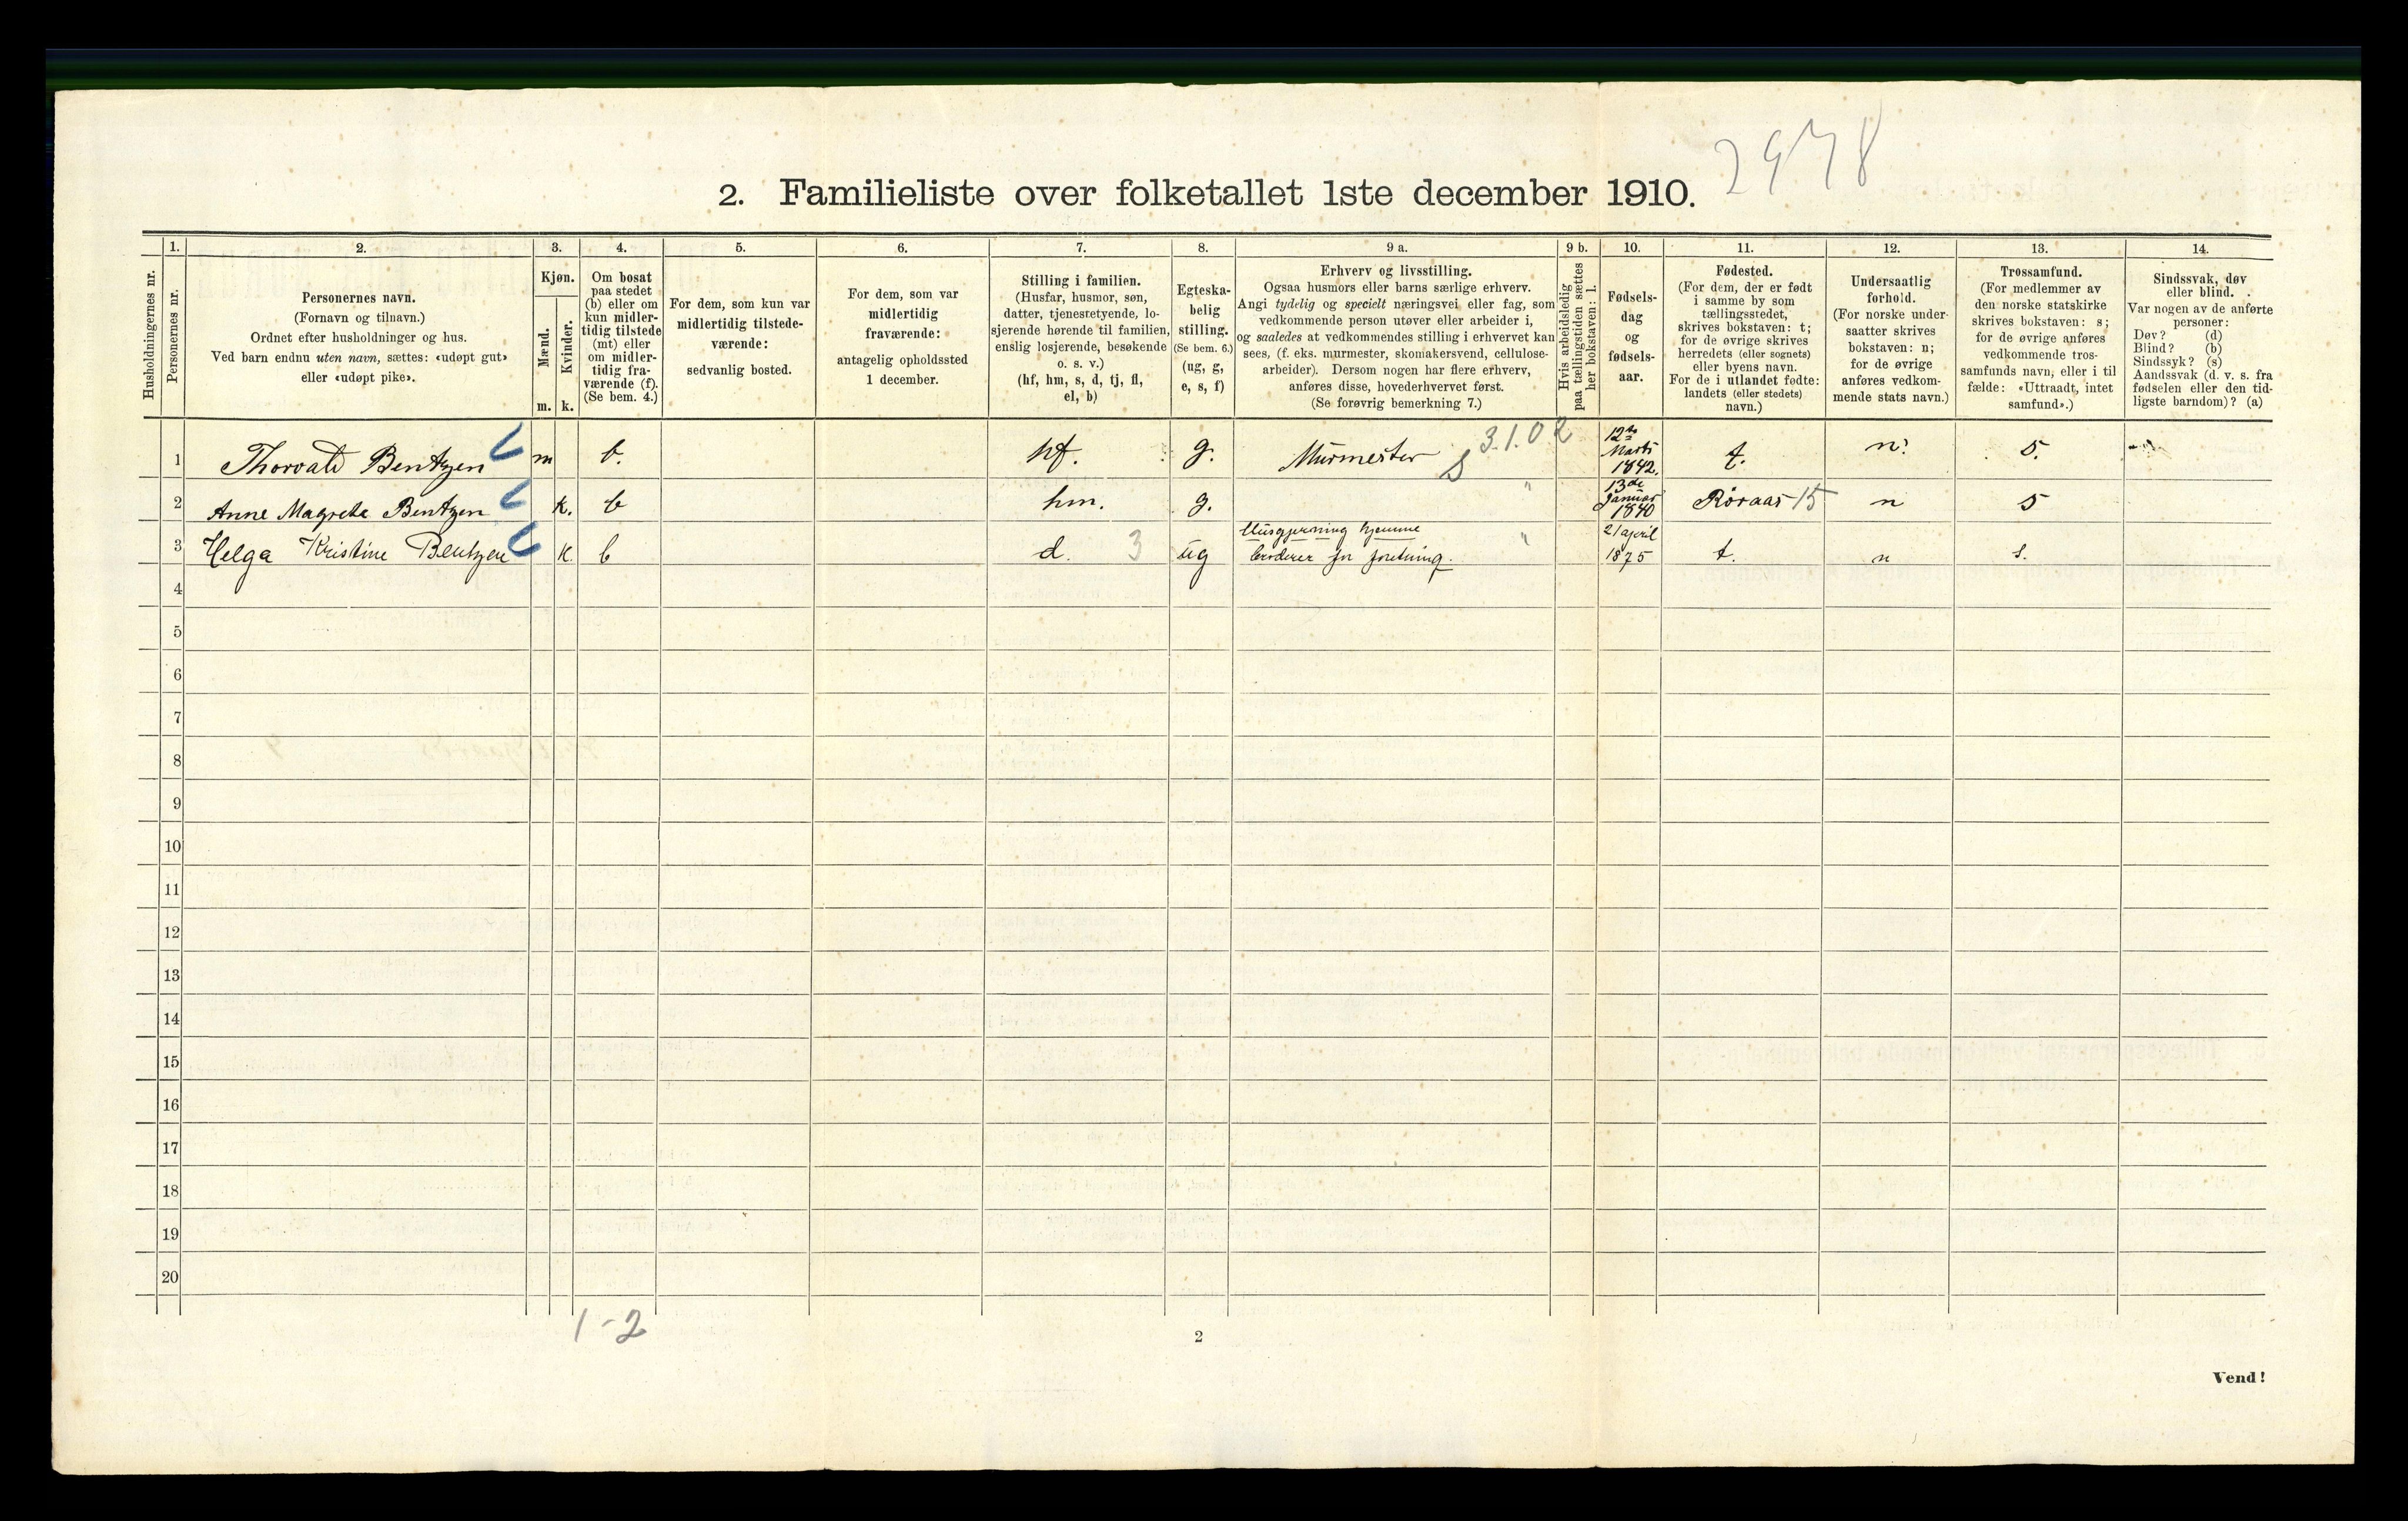 2978
2. Familieliste over folketallet 1ste december 1910.
Husholdningernes nr.
1.
Personernes nr.
2.
Personernes navn.
(Fornavn og tilnavn.)
Ordnet efter husholdninger og hus.
Ved barn endnu uten navn, sættes: «udøpt gut»
eller «udøpt pike».
3.
Kjøn.
Mænd.
Kvinder.
m. k.
4.
Om bosat
paa stedet
(b) eller om
kun midler-
tidig tilstede
(mt) eller
om midler-
tidig fra-
værende (f).
(Se bem. 4.)
5.
For dem, som kun var
midlertidig tilstede-
værende:
sedvanlig bosted.
6.
For dem, som var
midlertidig
fraværende:
antagelig opholdssted
1 december.
7.
Stilling i familien.
(Husfar, husmor, søn,
datter, tjenestetyende, lo-
sjerende hørende til familien,
enslig losjerende, besøkende
o. s. v.)
(hf, hm, s, d, tj, fl,
el, b)
8.
Egteska-
belig
stilling.
(Se bem. 6.)
(ug, g,
e, s, f)
9 a.
Erhverv og livsstilling.
Ogsaa husmors eller barns særlige erhverv.
Angi tydelig og specielt næringsvei eller fag, som
vedkommende person utøver eller arbeider i,
og saaledes at vedkommendes stilling i erhvervet kan
sees, (f. eks. murmester, skomakersvend, cellulose-
arbeider). Dersom nogen har flere erhverv,
anføres disse, hovederhvervet først.
(Se forøvrig bemerkning 7.)
9 b.
Hvis arbeidsledig
paa tællingstiden sættes
her bokstaven: l.
10.
Fødsels-
dag
og
fødsels-
aar.
11.
Fødested.
(For dem, der er født
i samme by som
tællingsstedet,
skrives bokstaven: t;
for de øvrige skrives
herredets (eller sognets)
eller byens navn.
For de i utlandet fødte:
landets (eller stedets)
navn.)
12.
Undersaatlig
forhold.
(For norske under-
saatter skrives
bokstaven: n;
for de øvrige
anføres vedkom-
mende stats navn.)
13.
Trossamfund.
(For medlemmer av
den norske statskirke
skrives bokstaven: s;
for de øvrige anføres
vedkommende tros-
samfunds navn, eller i til
fælde: «Uttraadt, intet
samfund».)
14.
Sindssvak, døv
eller blind.
Var nogen av de anførte
personer:
Døv? (d)
Blind? (b)
Sindssyk? (s)
Aandssvak (d. v. s. fra
fødselen eller den tid-
ligste barndom)? (a)
1 Thorvald Bentzen m b. hf. g. Murmester S 3.1.02 12te Marts 1842. t. n. s.
2 Anne Magreta Bentzen k. b hm. g. " 13de Januar 1840 Röraas 15 n s
3 Helga Kristine Bentzen k. b d. 3 ug Husgjerning hjemme broderer for foretning. " 21 april 1875 t. n s.
4
5
6
7
8
9
10
11
12
13
14
15
16
17
18
19
20
1-2
2
Vend!